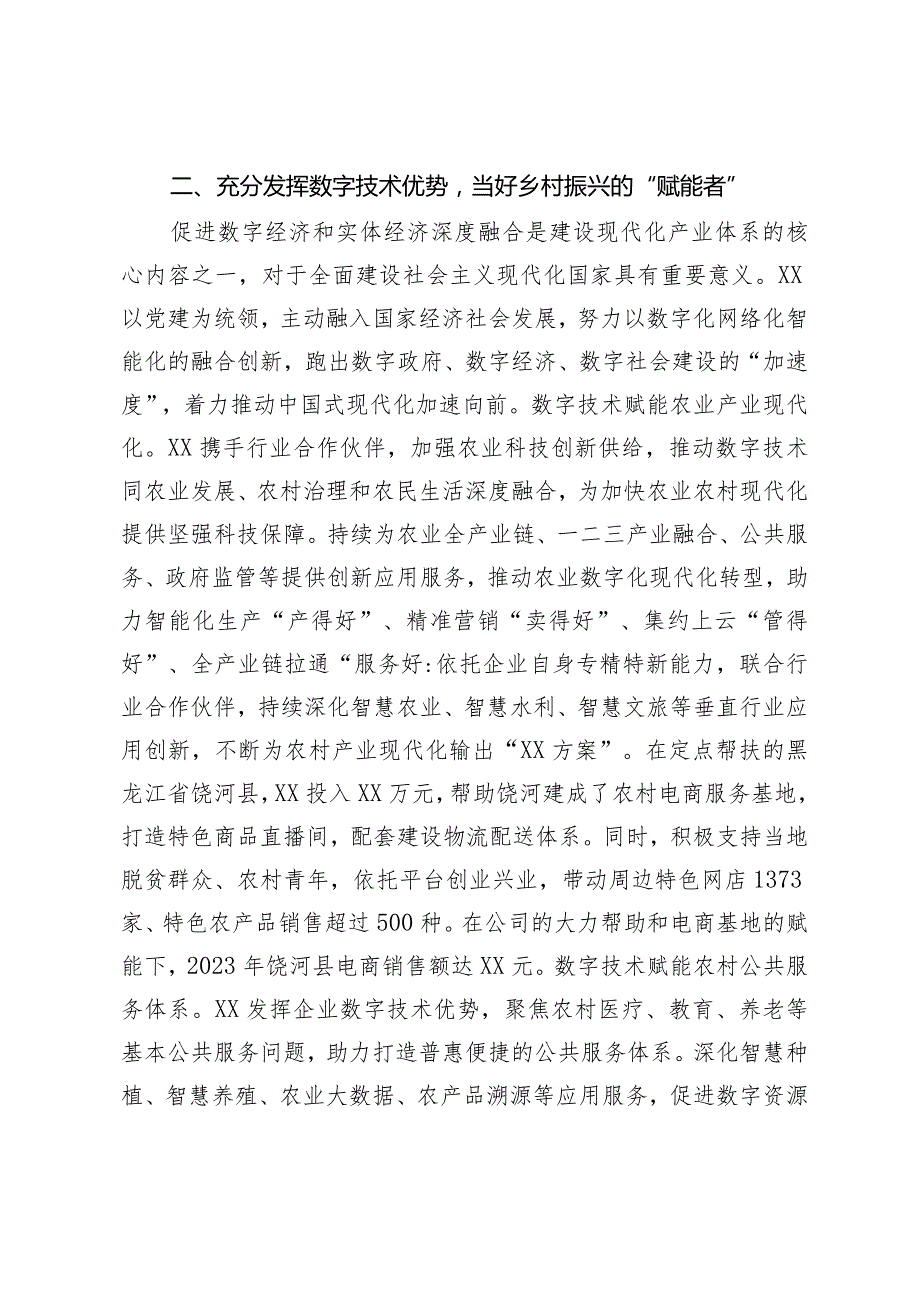 二、充分发挥数字技术优势，当好乡村振兴的“赋能者”
促进数字经济和实体经济深度融合是建设现代化产业体系的核
心内容之一，对于全面建设社会主义现代化国家具有重要意义。XX
以党建为统领，主动融入国家经济社会发展，努力以数字化网络化智
能化的融合创新，跑出数字政府、数字经济、数字社会建设的“加速
度”，着力推动中国式现代化加速向前。数字技术赋能农业产业现代
化。XX 携手行业合作伙伴，加强农业科技创新供给，推动数字技术
同农业发展、农村治理和农民生活深度融合，为加快农业农村现代化
提供坚强科技保障。持续为农业全产业链、一二三产业融合、公共服
务、政府监管等提供创新应用服务，推动农业数字化现代化转型，助
力智能化生产“产得好”、精准营销“卖得好”、集约上云“管得
好”、全产业链拉通“服务好:依托企业自身专精特新能力，联合行
业合作伙伴，持续深化智慧农业、智慧水利、智慧文旅等垂直行业应
用创新，不断为农村产业现代化输出“XX 方案”。在定点帮扶的黑
龙江省饶河县，XX 投入 XX 万元，帮助饶河建成了农村电商服务基地，
打造特色商品直播间，配套建设物流配送体系。同时，积极支持当地
脱贫群众、农村青年，依托平台创业兴业，带动周边特色网店 1373
家、特色农产品销售超过 500 种。在公司的大力帮助和电商基地的赋
能下，2023 年饶河县电商销售额达 XX 元。数字技术赋能农村公共服
务体系。XX 发挥企业数字技术优势，聚焦农村医疗、教育、养老等
基本公共服务问题，助力打造普惠便捷的公共服务体系。深化智慧种
植、智慧养殖、农业大数据、农产品溯源等应用服务，促进数字资源